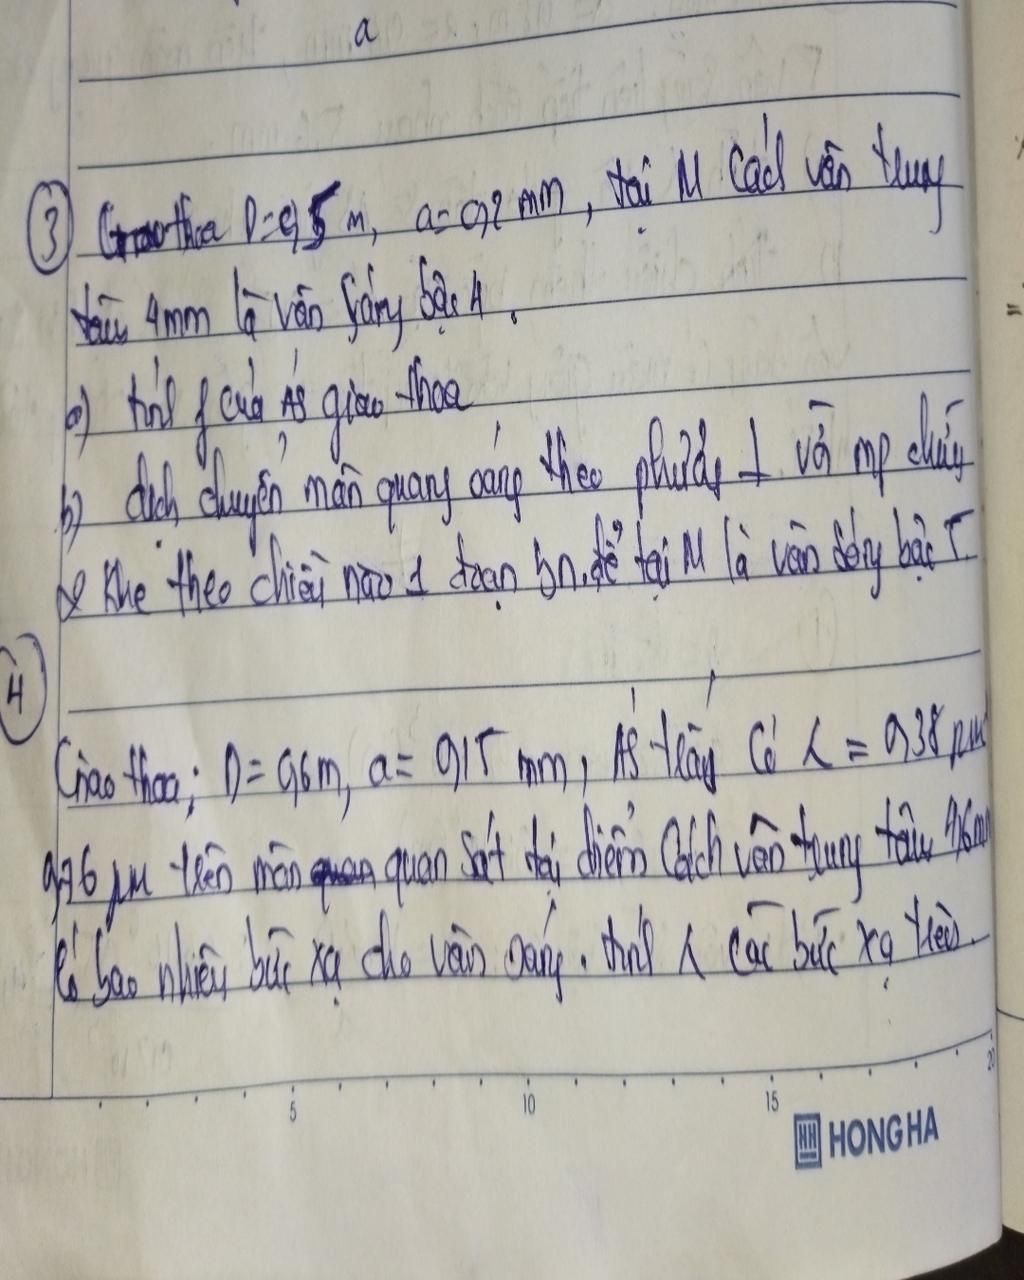 a
③ Giao thoa D = 0,5 m, a = 0,2 mm, tại M cách vân trung
tâm 4mm là vân sáng bậc 4.
a) tính f của AS giao thoa
b) dịch chuyển màn quang sáng theo phương ⊥ với mp chứa
2 khe theo chiều nào 1 đoạn bn. để tại M là vân sáng bậc 5
④
Giao thoa; D = 0,6m, a = 0,15 mm, AS trắng có λ = 0,38 μm
0,76 μm trên màn quan sát tại điểm cách vân trung tâm
có bao nhiêu bức xạ cho vân sáng. tính λ các bức xạ trên.
5 10 15 20
HH HONG HA